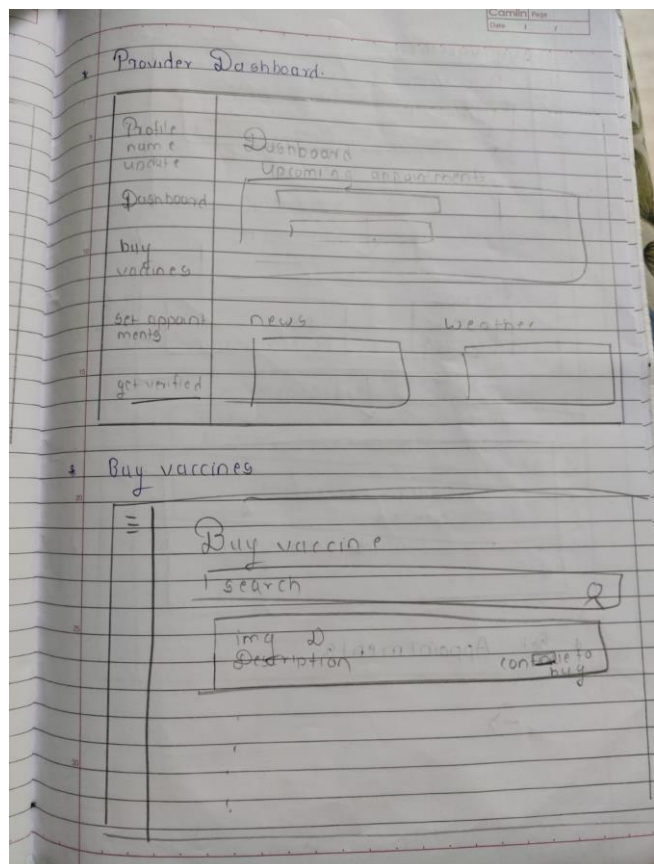 Camlin Page
Date / /
* Provider Dashboard.
Profile
name
update
Dashboard
buy
vaccines
set appoint
ments
get verified
Dashboard
Upcoming appointments
news
weather
* Buy vaccines
Buy vaccine
search
img D
Description
continue to
buy